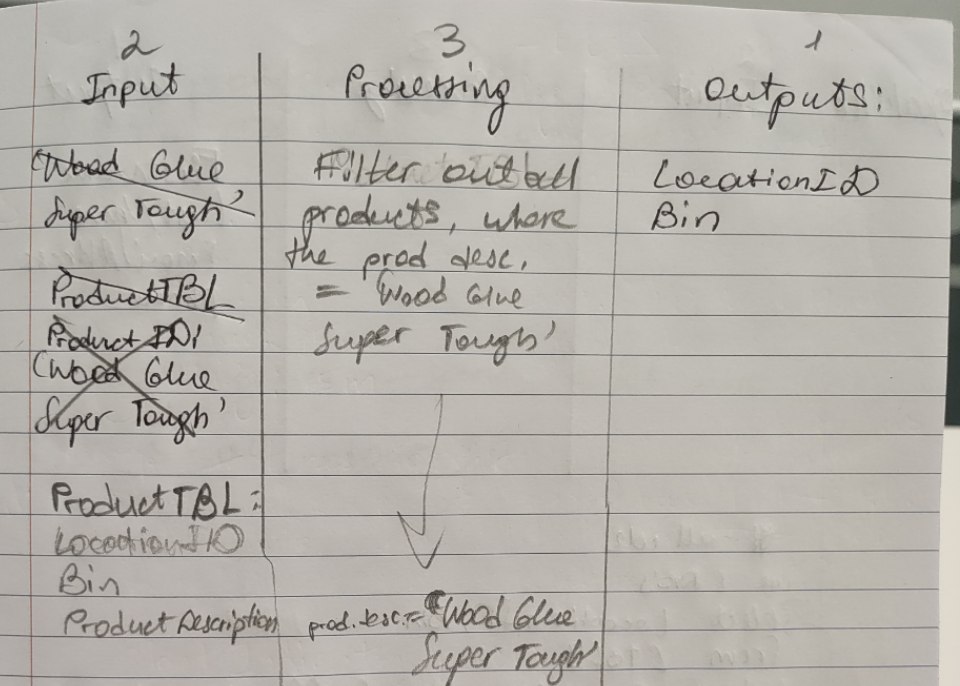 2
Input
'Wood Glue
Super Tough'
ProductTBL
Product ID:
'Wood Glue
Super Tough'
ProductTBL:
LocationID
Bin
Product Description
3
Processing
Filter out all
products, where
the prod desc.
= 'Wood Glue
Super Tough'
prod. desc. = 'Wood Glue
Super Tough'
1
Outputs:
LocationID
Bin